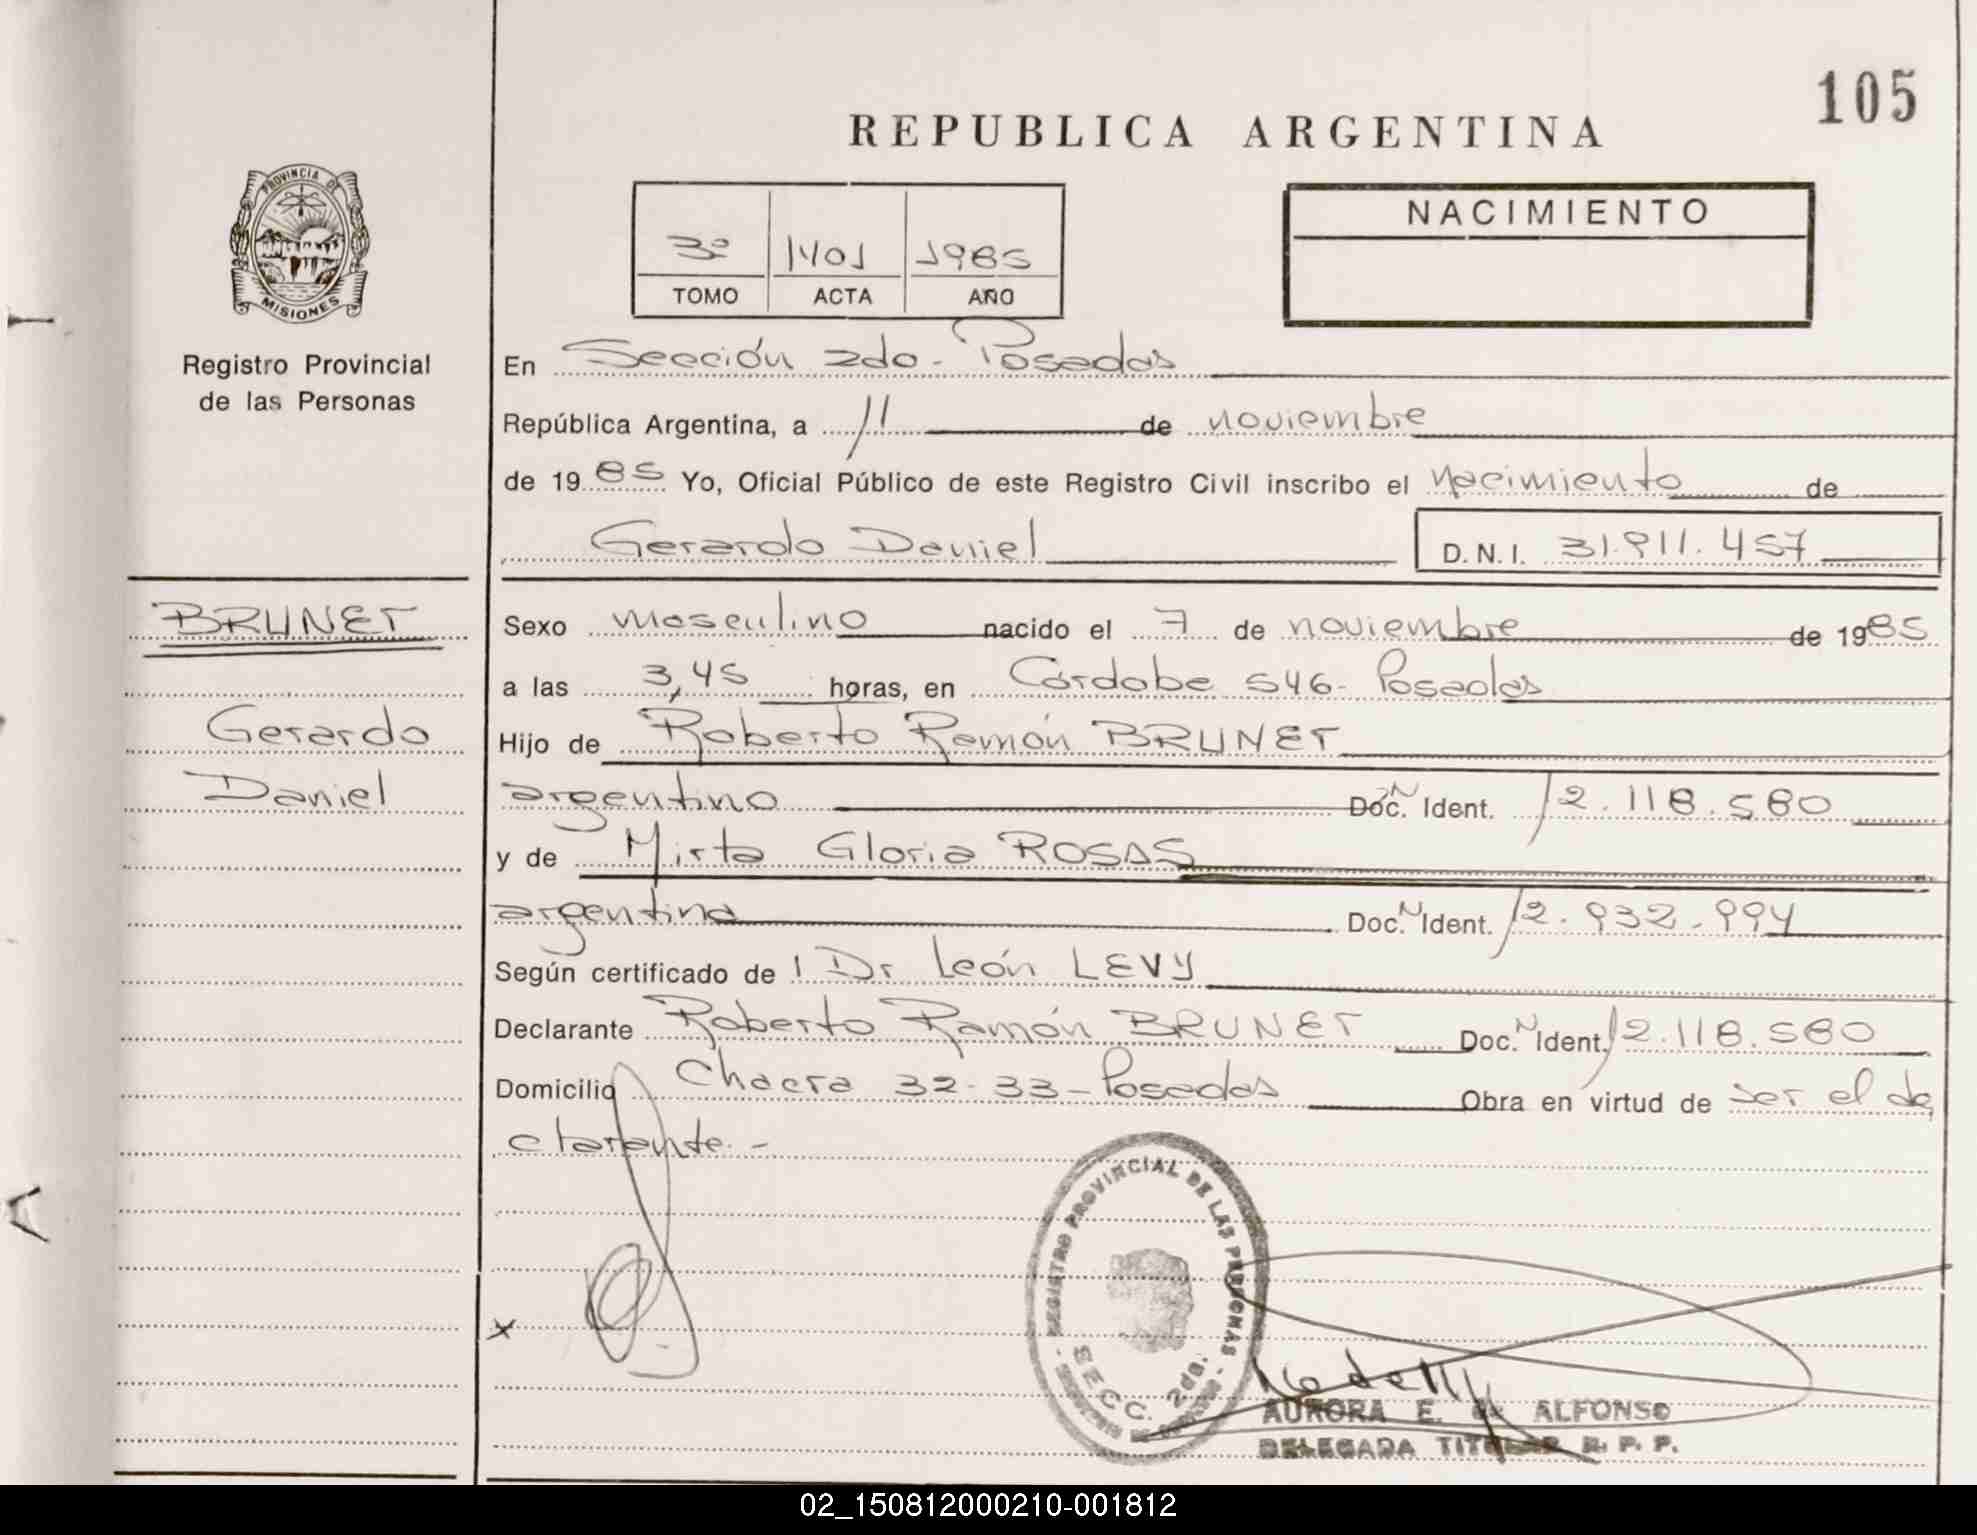 105
REPUBLICA ARGENTINA
PROVINCIA DE
MISIONES
Registro Provincial
de las Personas
3º 1401 1985
TOMO ACTA AÑO
NACIMIENTO
En Sección 2da - Posadas
República Argentina, a 11 de noviembre
de 1985 Yo, Oficial Público de este Registro Civil inscribo el nacimiento de
Gerardo Daniel D.N.I. 31.911.457
BRUNET
Gerardo
Daniel
Sexo masculino nacido el 7 de noviembre de 1985
a las 3,45 horas, en Córdoba 546- Posadas
Hijo de Roberto Ramón BRUNET
argentino Doc. N Ident. 12.118.580
y de Mirta Gloria ROSAS
argentina Doc. N Ident. 12.932.994
Según certificado de l Dr León LEVY
Declarante Roberto Ramón BRUNET Doc. N Ident. 12.118.580
Domicilio Chacra 32-33-Posadas Obra en virtud de ser el de
clarante.-
REGISTRO PROVINCIAL DE LAS PERSONAS
SECC. 2da.
x
AURORA E. de ALFONSO
DELEGADA TITULAR R. P. P.
02_150812000210-001812